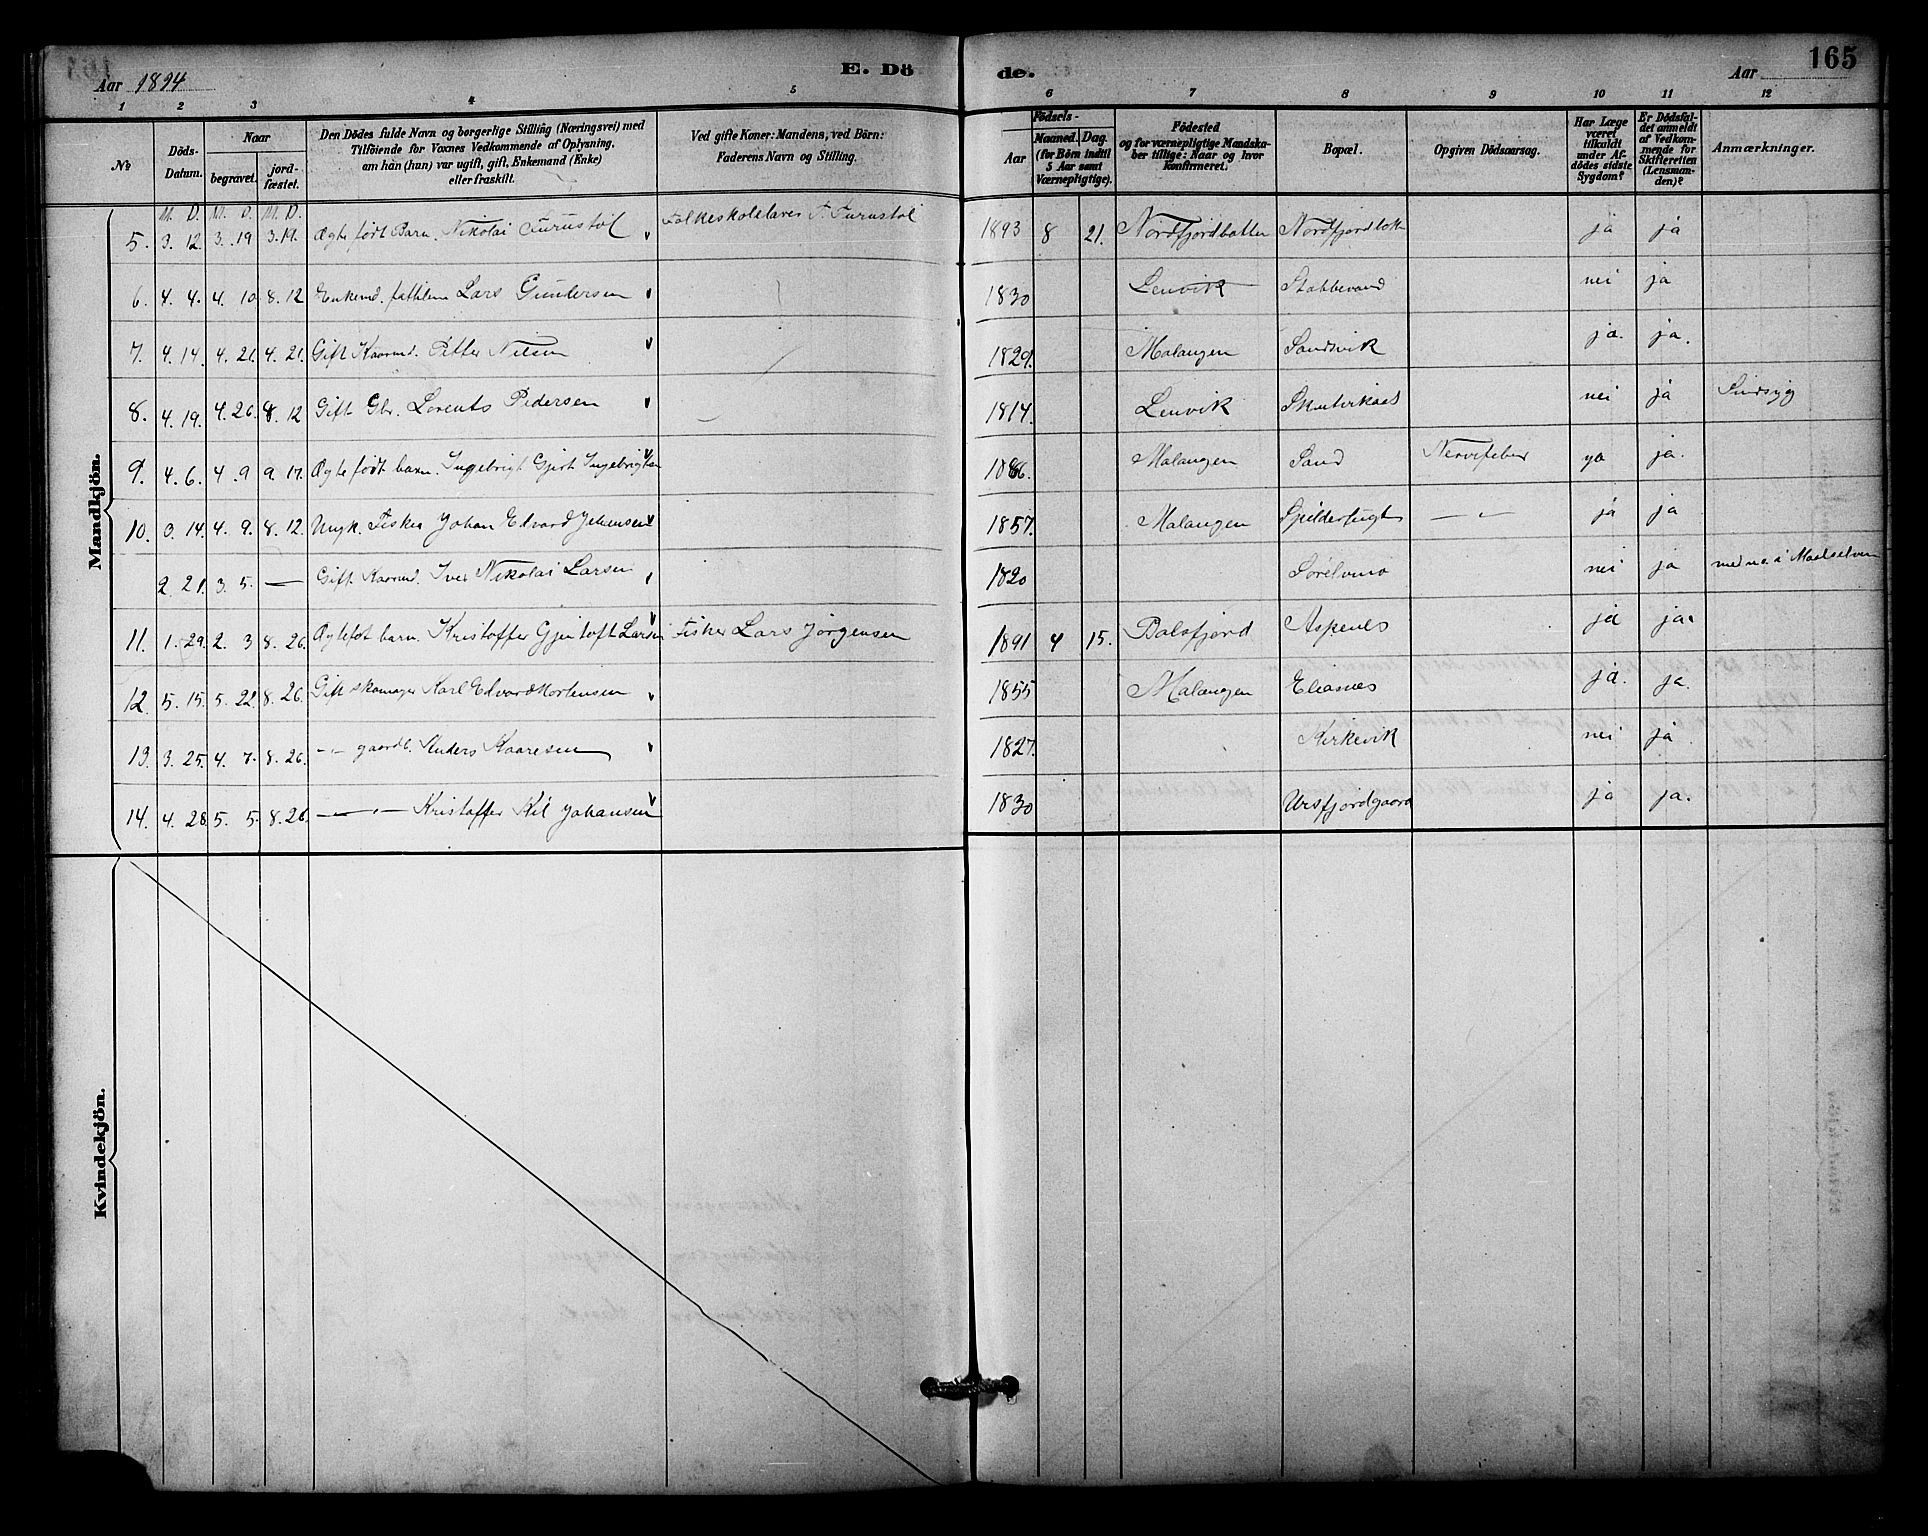 Aar 1894
E. Dö
de.
Aar
165
1 2 3 4 5 6 7 8 9 10 11 12
No
Döds-Datum.
Naar
begravet.
jordfæstet.
Den Dödes fulde Navn og borgerlige Stilling (Næringsvei) med
Tilföiende for Voxnes Vedkommende af Oplysning,
om hän (hun) var ugift, gift, Enkemand (Enke)
eller fraskilt.
Ved gifte Koner: Mandens, ved Börn:
Faderens Navn og Stilling.
Födsels-
Aar
Maaned. Dag.
(for Börn indtil
5 Aar samt
Værnepligtige).
Födested
og for værnepligtige Mandska-
ber tillige: Naar og hvor
konfirmeret.
Bopæl.
Opgiven Dödsaarsag.
Har Læge
været
tilkaldt
under Af-
dödes sidste
Sygdom?
Er Dödsfal-
det anmeldt
af Vedkom-
mende for
Skifteretten
(Lensman-
den)?
Anmærkninger.
Mandkjön.
M. D. M. D. M. D.
5. 3. 12. 3. 19 3. 19. Ægte født Barn. Nikolai Furustøl Folkeskolelærer T. Furustøl 1893 8 21. Nordfjordbotten Nordfjordbotn ja ja
6. 4. 4. 4. 10 8. 12 Enkemd. Lars Gundersen 1830 Lenvik nei ja
7. 4. 14. 4. 21. 4. 21. Gift Kaarmd. Petter Nilsen 1829. Malangen Sandvik ja. ja.
8. 4. 19. 4. 26. 8. 12 Gift Gbr. Lorents Pedersen 1814. Lenvik nei ja Sindsyg
9. 4. 6. 4. 9 9. 17. Ægte født barn. Ingebrigt Gjert Ingebrigtsen Malangen Sand Nervefeber ja ja.
10. 3. 14. 4. 9. 8. 12. Ungk. Fisker Johan Edvard Johansen 1857. Malangen — " — ja ja
2. 21. 3. 5. — Gift. Kaarmd. Iver Nikolai Larsen 1820 nei ja
11. 1. 29. 2. 3 8. 26. Ægtefødt barn. Kristoffer Gjertoft Larsen Fisker Lars Jørgensen 1891 4 15. Balsfjord Aspenes ja ja.
12. 5. 15. 5. 22. 8. 26. Gift skomager Karl Edvard Mortensen 1855 Malangen ja. ja.
13. 3. 25. 4. 7. 8. 26. — " — gaardb. Anders Kaaresen 1827. Kirkevik nei ja
14. 4. 28. 5. 5. 8. 26. — " — Kristoffer Kil Johansen 1830 Ursfjordgaard ja ja.
Kvindekjön.